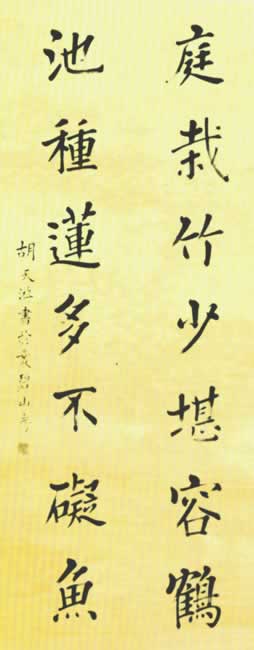 庭栽竹少堪容鶴
池種蓮多不礙魚
胡天
書於
山